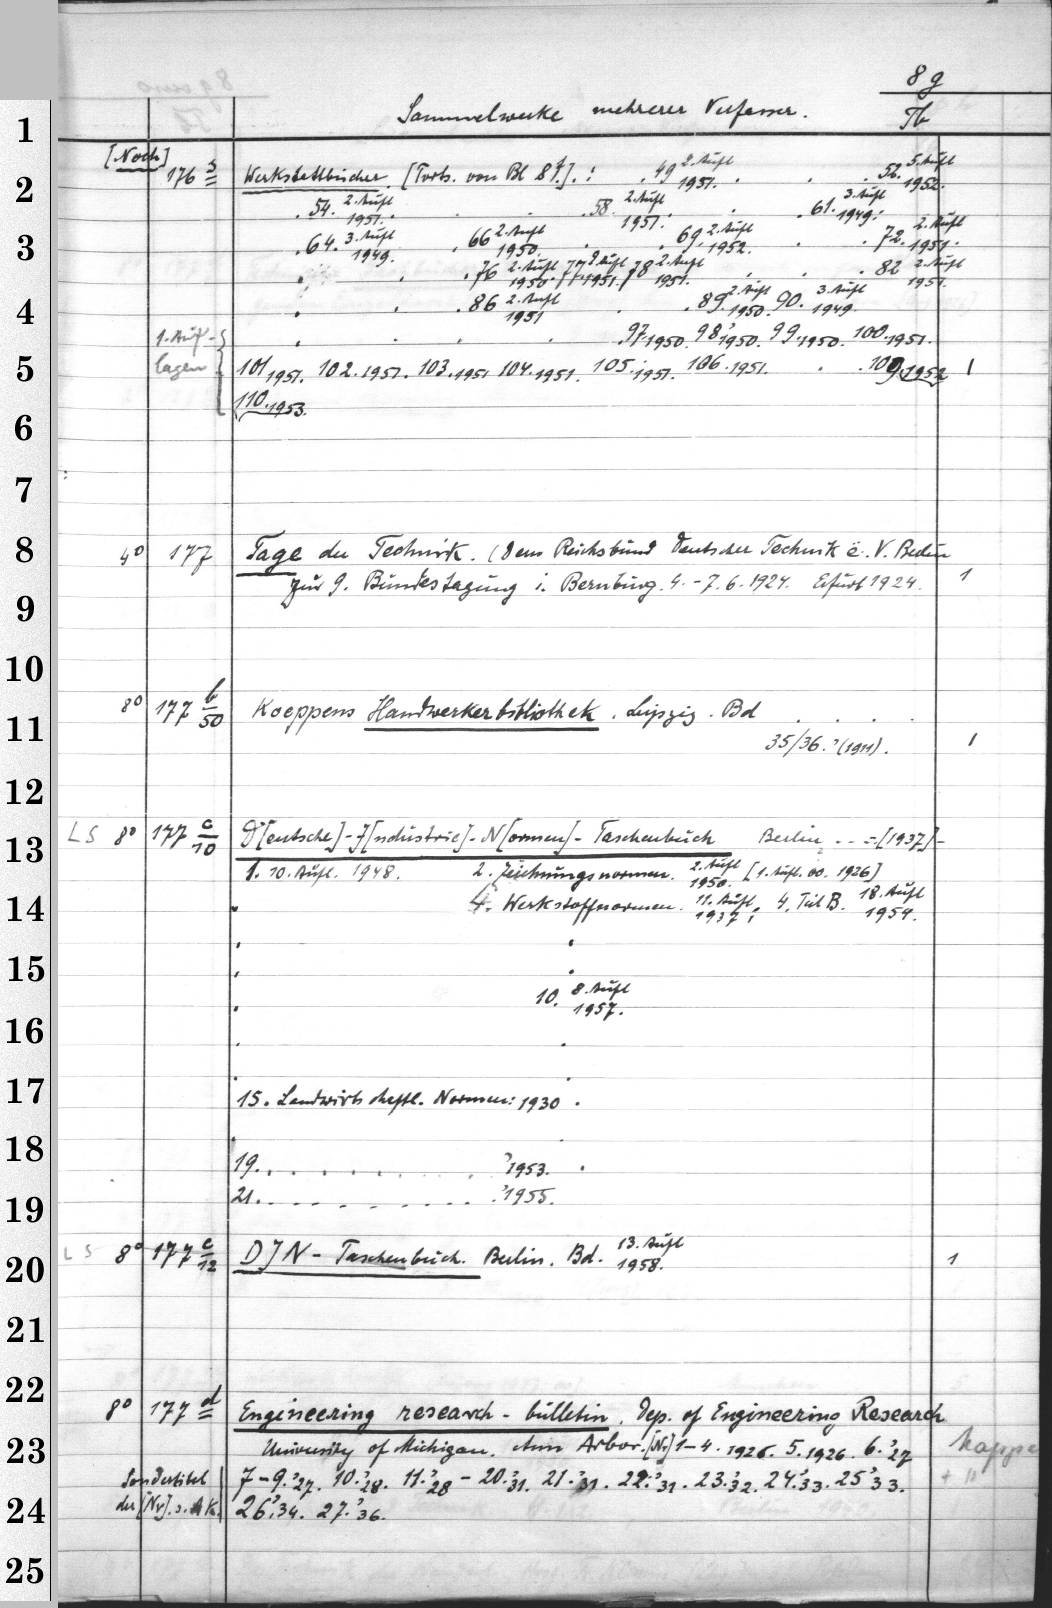 8 g
Sammelwerke mehrerer Verfasser. Tb
1
[Noch]
176 s Werkstattbücher. [Forts. von Bl 8f.] : .49 2. Aufl 1951. . . 52. 5. Aufl 1952.
2
.54. 2. Aufl 1951. . . .58. 2. Aufl 1951. . .61. 3. Aufl 1949.
3
.64. 3. Aufl 1949. .66 2. Aufl 1950. . .69. 2. Aufl 1952. . .72. 2. Aufl 1951.
. . .76 2. Aufl 1950. /77. 2. Aufl 1951. /78 2. Aufl 1951. . . .82 2. Aufl 1951.
4
. . .86 2. Aufl 1951 . . .89. 2. Aufl 1950. 90. 3. Aufl 1949.
1. Auf- . . . . .97. 1950. 98. 1950. 99. 1950. 100. 1951.
5
lagen 101 1951. 102. 1951. 103. 1951 104. 1951. 105. 1951. 106. 1951. . .109. 1952 1
110. 1953.
6
7
8
4° 177 Tage der Technik. (Dem Reichsbund Deutscher Technik e. V. Berlin
zur 9. Bundestagung i. Bernburg. 4. - 7. 6. 1924. Erfurt 1924. 1
9
10
8° 177 b/50 Koeppens Handwerkerbibliothek. Leipzig. Bd . . . .
11
35/36. (1911). 1
12
LS 8° 177 c/10 D[eutsche]-J[ndustrie]-N[ormen]-Taschenbuch Berlin .. =[1937]-
13
1. 10. Aufl. 1948. 2. Zeichnungsnormen. 2. Aufl 1950. [1. Aufl. oo. 1926]
14
4. Werkstoffnormen. 11. Aufl 1937; 4. Teil B. 18. Aufl 1954.
15
10. 8. Aufl 1957.
16
17
15. Landwirtschaftl. Normen: 1930 .
18
19. . . . . . . . . '1953. .
21. . . . . . . . . '1955.
19
LS 8° 177 c/12 DJN - Taschenbuch. Berlin. Bd. 13. Aufl 1958. 1
20
21
22
8° 177 d Engineering research - bulletin. Dep. of Engineering Research
23
University of Michigan. Ann Arbor. [Nr] 1-4. 1926. 5. 1926. 6. '27 Mappe
Sondertitel 7-9. '27. 10. '28. 11. '28 - 20. '31. 21. '31. 22. '31. 23. '32. 24. '33. 25 '33.
24
der [Nr]. s. AK. 26. '34. 27. '36.
25